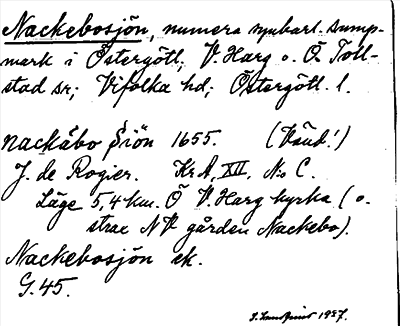 Nackebosjön, numera synbart. sump-
mark i Östergötl., V. Harg o. Ö. Toll-
stad sr; Vifolka hd; Östergötl. l.
nackåbo Siön 1655. (Vänd!)
J. de Rogier. Kr A, XII, No C.
Läge 5,4 km. Ö V. Harg kyrka (o.
strax NV gården Nackebo).
Nackebosjön ek.
G. 45.
1937.